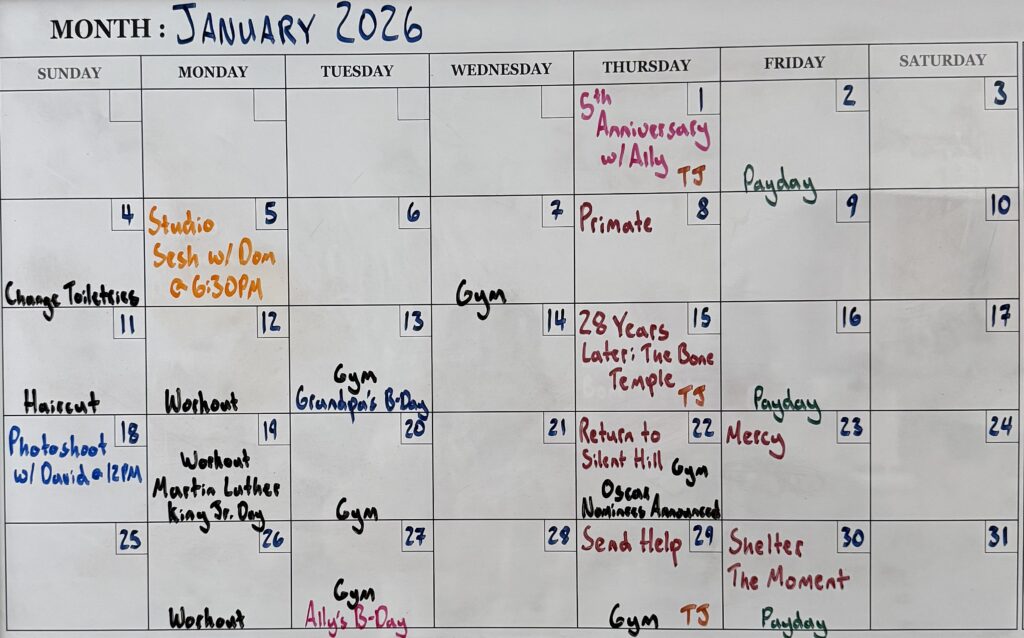 MONTH : JANUARY 2026
SUNDAY MONDAY TUESDAY WEDNESDAY THURSDAY FRIDAY SATURDAY
1
5th
Anniversary
w/ Ally
TJ
2
Payday
3
4
Change Toiletries
5
Studio
Sesh w/ Dom
@ 6:30PM
6
7
Gym
8
Primate
9
10
11
Haircut
12
Workout
13
Gym
Grandpa's B-Day
14
15
28 Years
Later: The Bone
Temple
TJ
16
Payday
17
18
Photoshoot
w/ David @ 12PM
19
Workout
Martin Luther
King Jr. Day
20
Gym
21
22
Return to
Silent Hill
Gym
Oscar
Nominees Announced
23
Mercy
24
25
26
Workout
27
Gym
Ally's B-Day
28
29
Send Help
Gym TJ
30
Shelter
The Moment
Payday
31